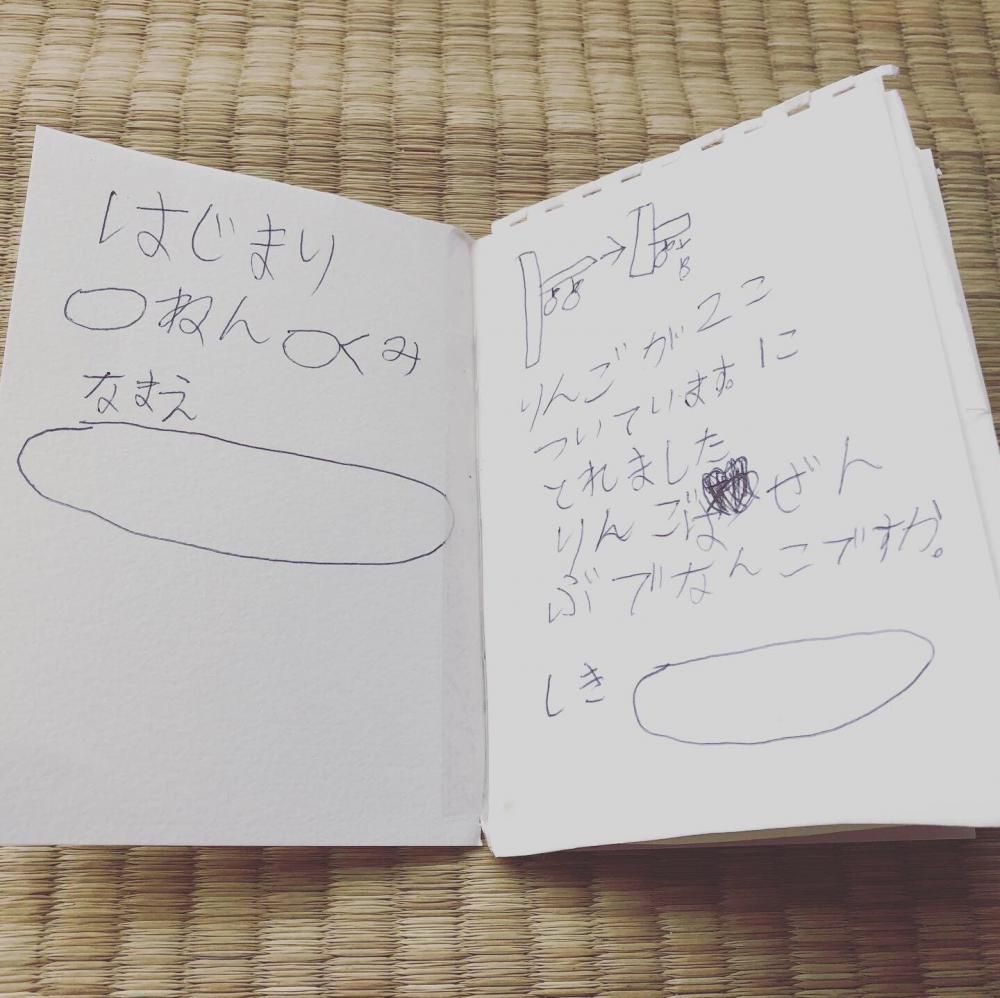 はじまり
○ねん○くみ
なまえ
りんごが2こ
ついています。1こ
とれました
りんごはぜん
ぶでなんこですか。
しき